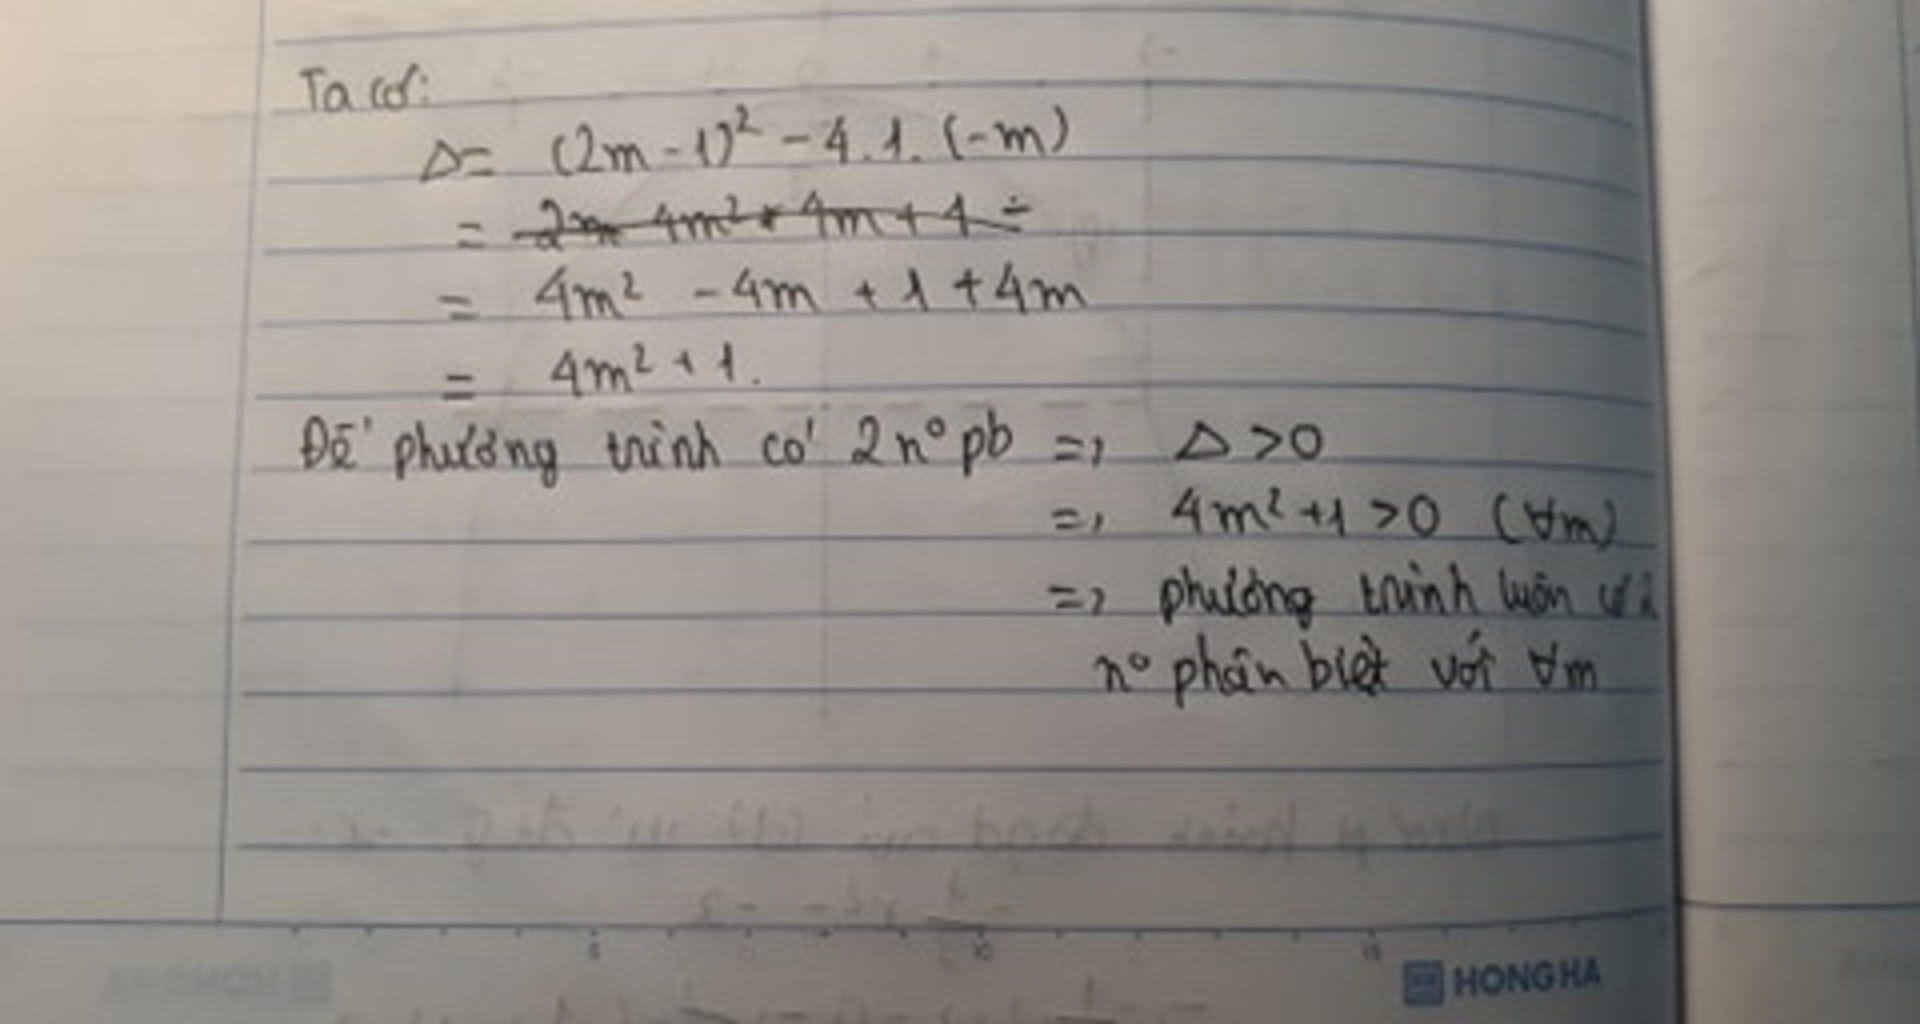 Ta có:
Δ = (2m - 1)² - 4.1.(-m)
= 4m² - 4m + 1 + 4m
= 4m² + 1.
Để phương trình có 2 n° pb => Δ > 0
=> 4m² + 1 > 0 (∀m)
=> phương trình luôn có 2
n° phân biệt với ∀m
5 10 15
HONG HA